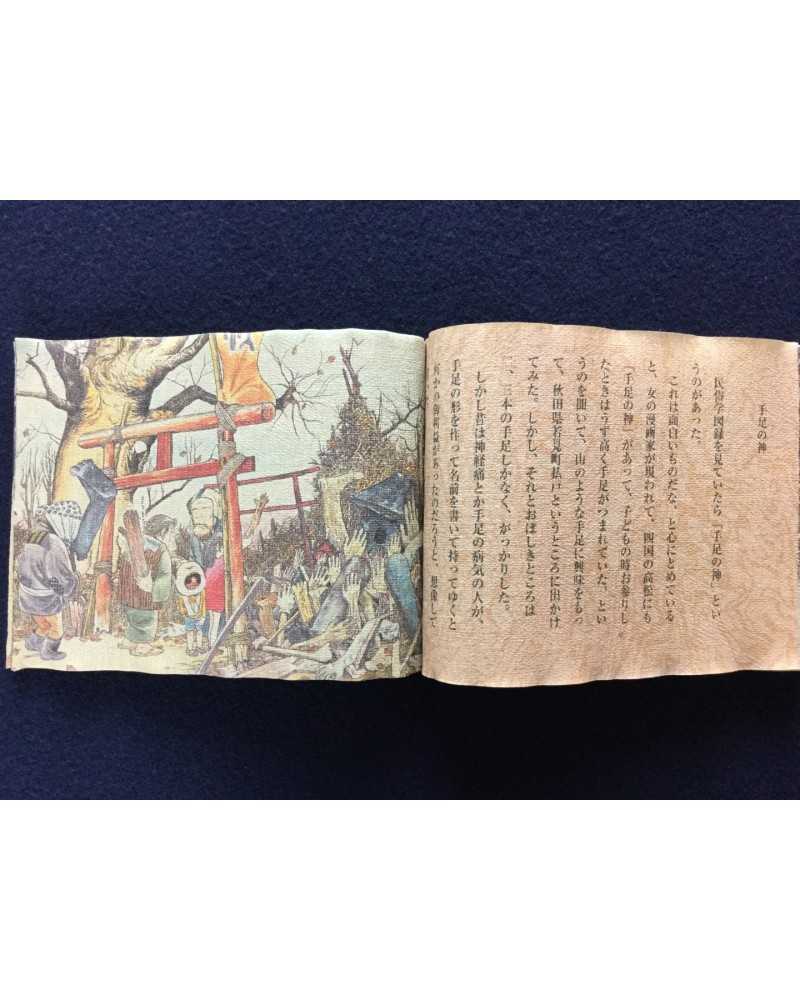 手足の神
民俗学図録を見ていたら「手足の神」とい
うのがあった。
これは面白いものだな、と心にとめている
と、女の漫画家が現われて、四国の高松にも
「手足の神」があって、子どもの時お参りし
たときはうず高く手足がつまれていた、とい
うのを聞いて、山のような手足に興味をもっ
て、秋田県若見町払戸というところに出かけ
てみた。しかし、それとおぼしきところは
二、三本の手足しかなく、がっかりした。
しかし昔は神経痛とか手足の病気の人が、
手足の形を作って名前を書いて持ってゆくと
何かの御利益があったのだろうと、想像して